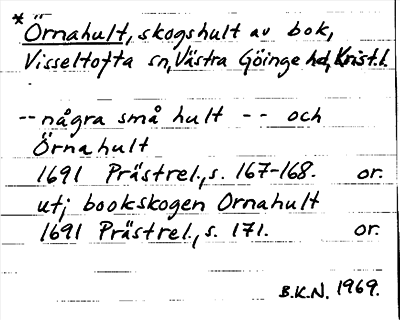 *Örnahult, skogshult av bok,
Visseltofta sn, Västra Göinge hd, Krist. l.
-- några små hult -- och
Örnahult
1691 Prästrel., s. 167-168. or.
utj bookskogen Ornahult
1691 Prästrel., s. 171. or.
B.K.N. 1969.